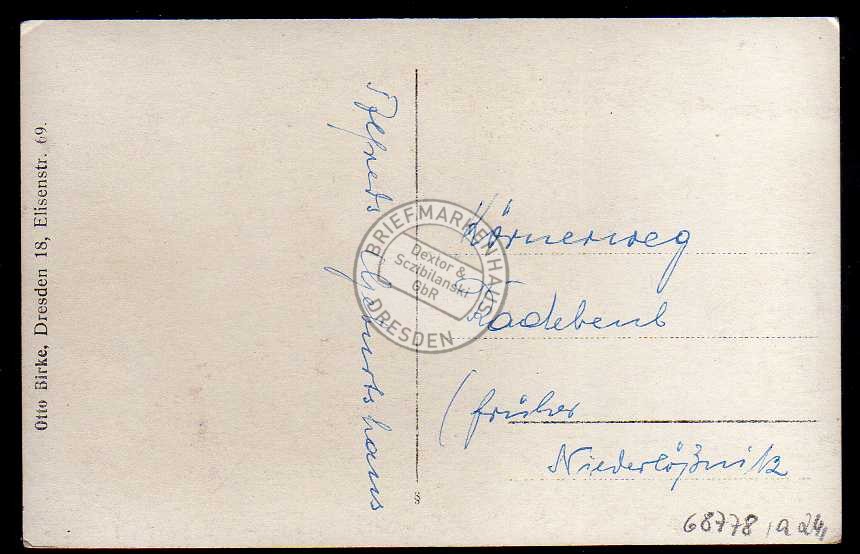 Otto Birke, Dresden 18, Elisenstr. 69.
Alfreds Geburtshaus
Körnerweg
Radebeul
(früher
Niederlößnitz
BRIEFMARKENHAUS
Dextor &
Sczibilanski
GbR
DRESDEN
S
68778